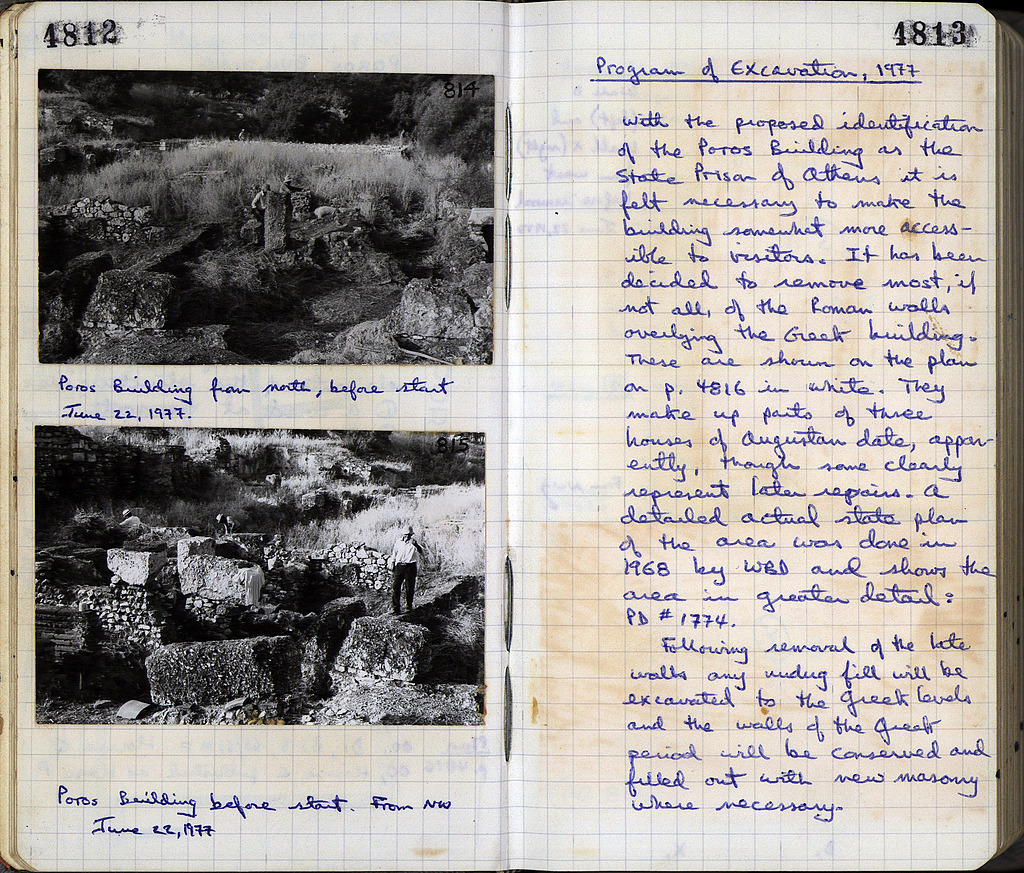 4812
814
Poros Building from north, before start
June 22, 1977.
815
Poros Building before start. From NW
June 22, 1977
4813
Program of Excavation, 1977
With the proposed identification
of the Poros Building as the
State Prison of Athens it is
felt necessary to make the
building somewhat more access-
ible to visitors. It has been
decided to remove most, if
not all, of the Roman walls
overlying the Greek building.
These are shown on the plan
on p. 4816 in white. They
make up parts of three
houses of Augustan date, appar-
ently, though some clearly
represent later repairs. A
detailed actual state plan
of the area was done in
1968 by WBD and shows the
area in greater detail:
PD # 1774.
Following removal of the late
walls any undug fill will be
excavated to the Greek levels
and the walls of the Greek
period will be conserved and
filled out with new masonry
where necessary.